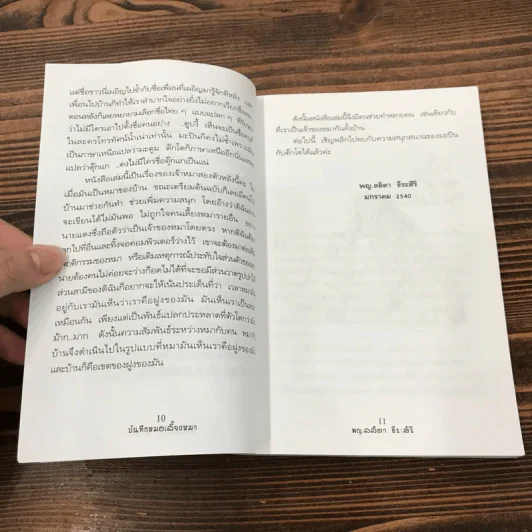 แต่ชื่อขาวนี่เผอิญไปซ้ำกับชื่อเพื่อนที่เผอิญมารู้จักทีหลัง
เพื่อนไปบ้านก็ทำให้เราลำบากใจอย่างยิ่งไม่อยากเรียกชื่อ
ตอนหลังก็เลยพยายามเลือกชื่อไทย ๆ แบบแปลก ๆ
ว่าไม่มีใครเอาไปตั้งชื่อคนอย่าง
ในละครโทรทัศน์น้ำเน่าเท่านั้น มะปินก็คงไม่ซ้ำ
เป็นภาษาเหนือแปลว่ามะตูม ตักโตก็ภาษาเหนืออีก
ว่าตุ๊กแก ...คงไม่มีใครชื่อตุ๊กแกเป็นแน่
หนังสือเล่มนี้เป็นเรื่องของเจ้าหมาสองตัวหลังนี้
เมื่อมันเป็นหมาของบ้าน ขณะเตรียมต้นฉบับก็เลย
บ้านมาช่วยกันทำ ช่วยเพิ่มความสนุก โดยอ้างว่า
จะเขียนได้ไม่มันพอ ไม่ถูกใจคนเลี้ยงหมารายอื่น
นายแดงซึ่งถือตัวว่าเป็นเจ้าของหมาโดยตรง หากดิฉัน
ลุกไปที่อื่นและทิ้งจอคอมพิวเตอร์ว่างไว้ เขาจะต้องมา
พฤติกรรมของหมา หรือเติมเหตุการณ์ประทับใจส่วนตัว
นายต้องคนไม่ค่อยจะว่างก็อดไม่ได้ที่จะขอมีส่วนวาดรูป
ส่วนสามีของดิฉันก็อยากจะให้เน้นประเด็นที่ว่า เวลาหมา
อยู่กับเรามันเห็นว่าเราคือฝูงของมัน มันเห็นเราเป็น
เหมือนกัน เพียงแต่เป็นพันธุ์แปลกประหลาดที่ตัวโตกว่า
ม้าก..มาก ดังนั้นความสัมพันธ์ระหว่างหมากับคน
บ้านจึงดำเนินไปในรูปแบบที่หมามันเห็นเราคือฝูงของ
และบ้านก็คือเขตของฝูงของมัน
10
บันทึกหมอเลี้ยงหมา
ดังนั้นหนังสือเล่มนี้จึงมีคนช่วยทำหลายคน เช่นเดียวกับ
ที่เราเป็นเจ้าของหมากันทั้งบ้าน
ต่อไปนี้ เชิญพลิกไปพบกับความสนุกสนานของมะปิน
กับตักโตได้แล้วค่ะ
พญ.ลลิตา ธีระสิริ
มกราคม 2540
11
พญ.ลลิตา ธีระสิริ